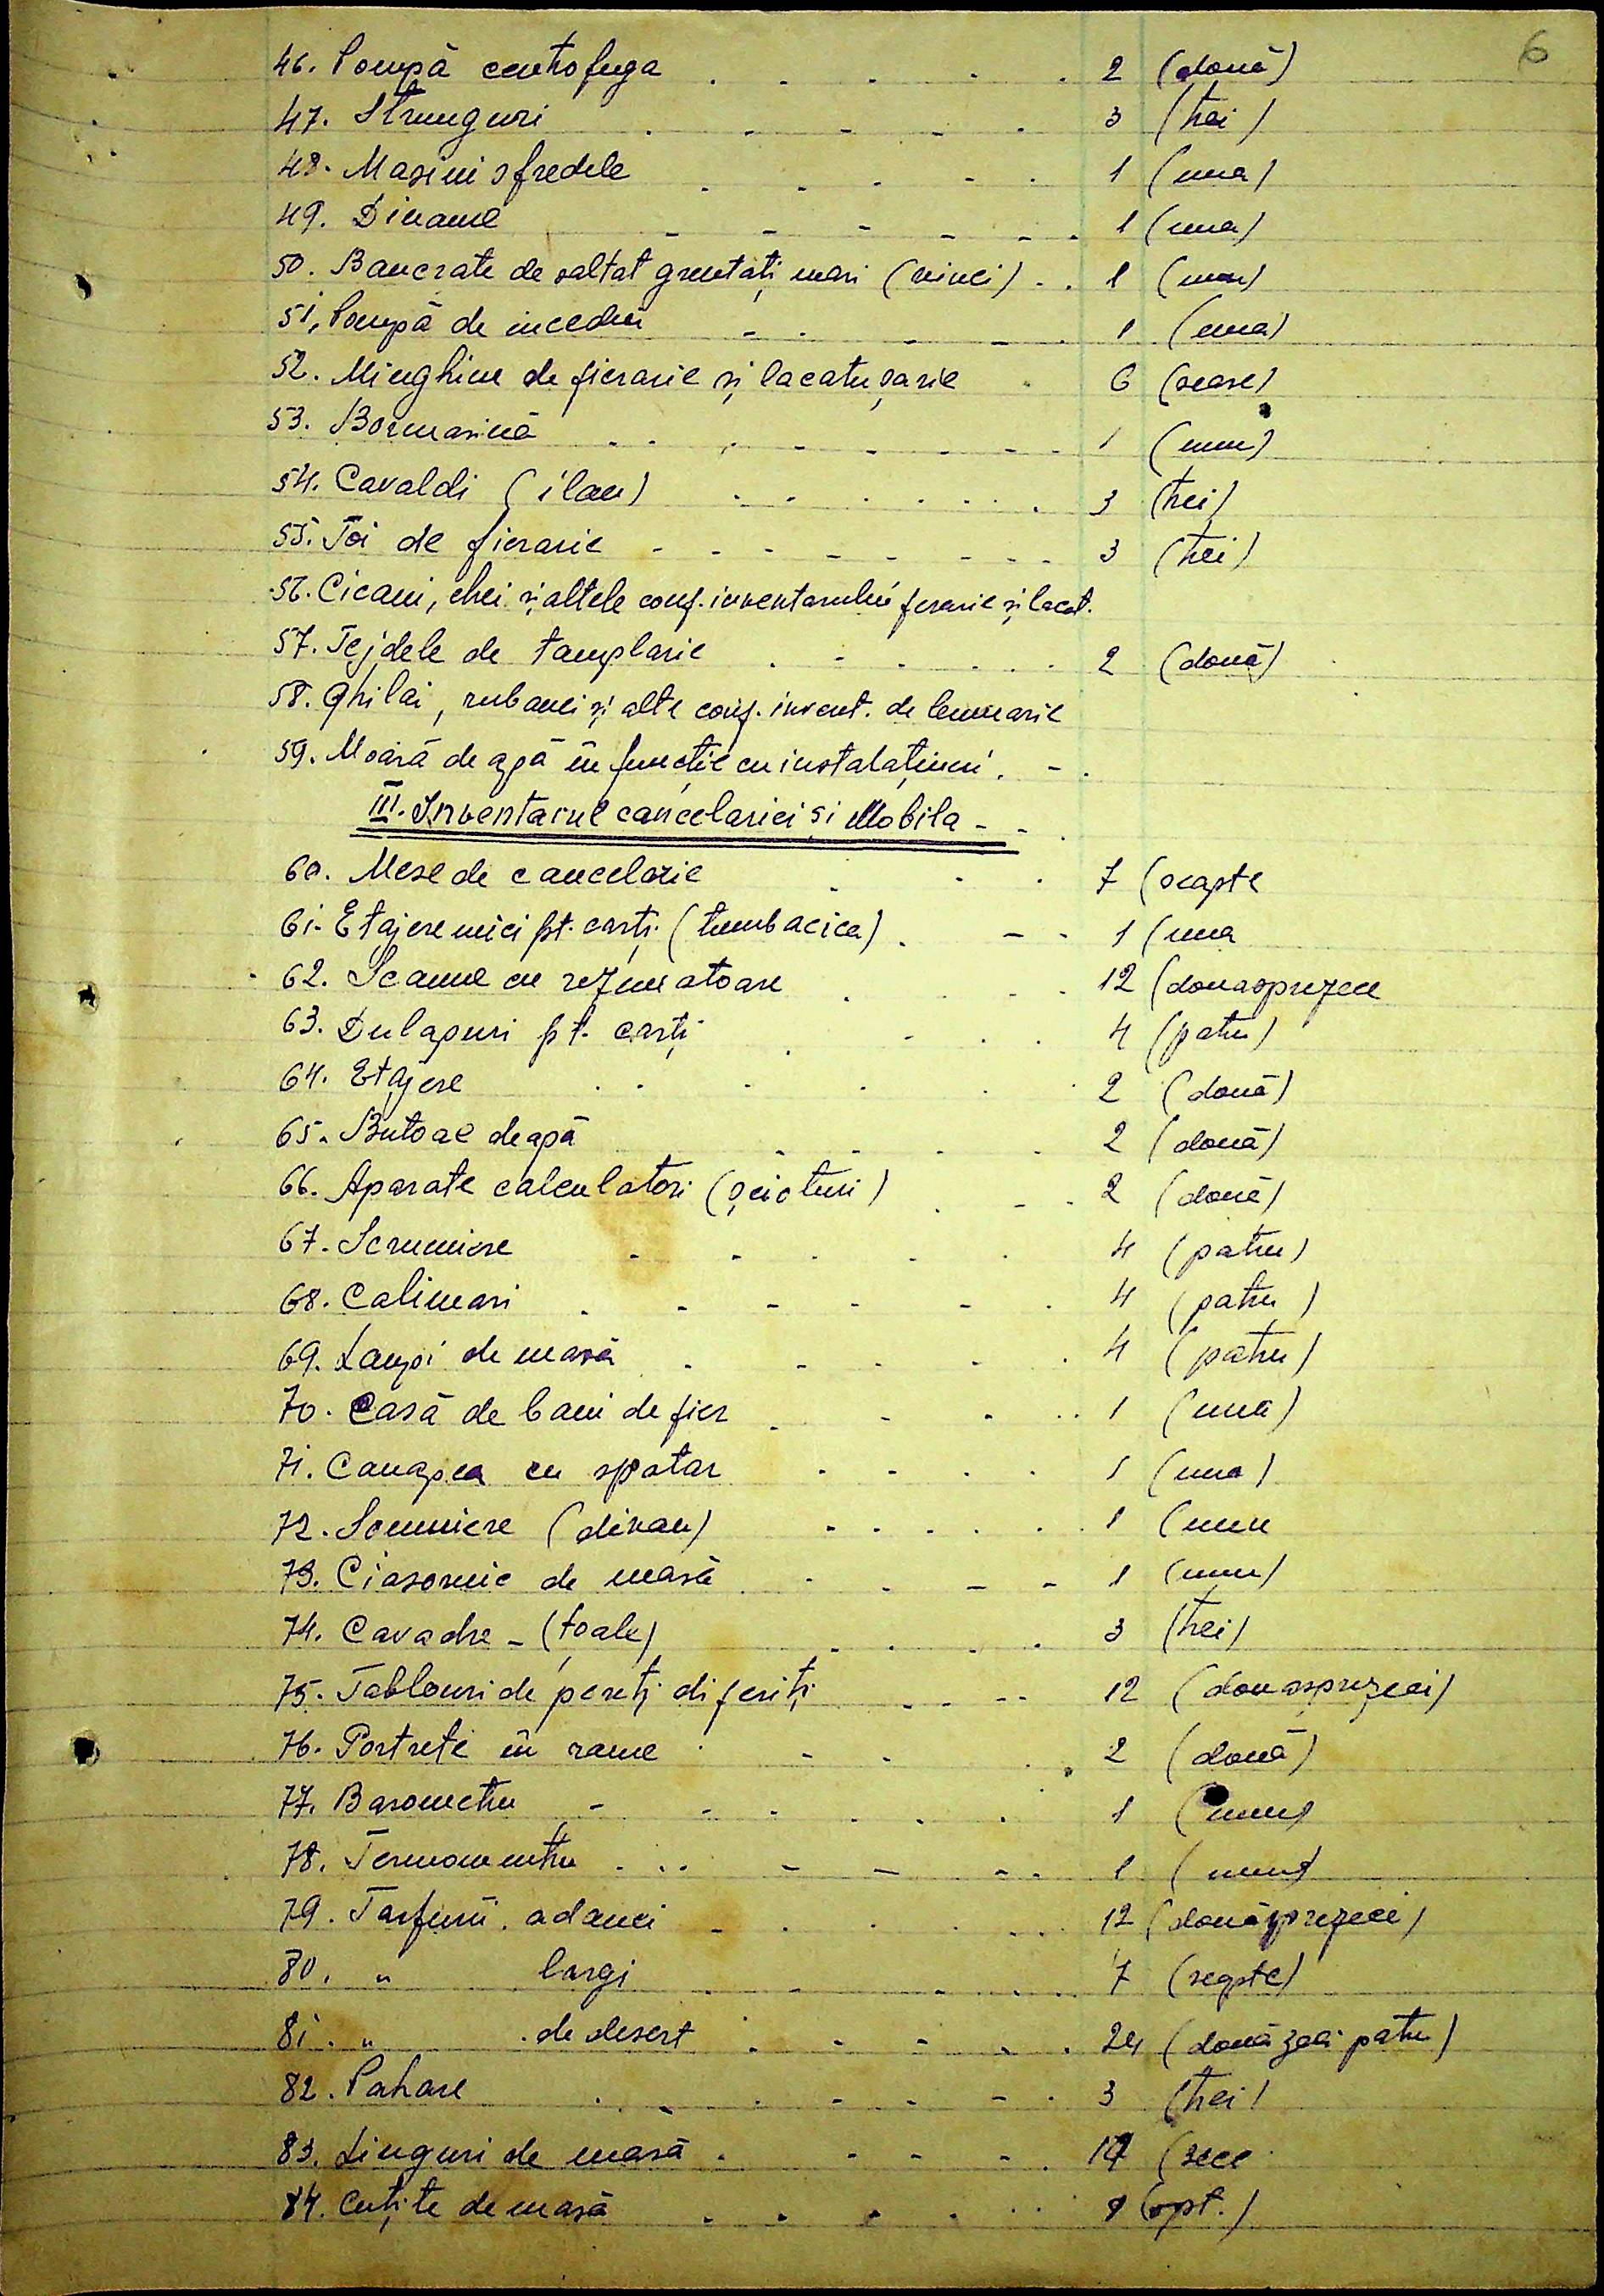 6
46. Pompă centrofuga . . . . . 2 (două)
47. Strunguri . . . . . 3 (trei)
48. Masini sfredele . . . . . 1 (una)
49. Diname . . . . . 1 (una)
50. Bancrate de saltat greutăți mari (vinci) . . 1 (una)
51. Pompă de incediu . . . . . 1 (una)
52. Minghine de fierarie și lacatușarie . 6 (sease)
53. Bormasină . . . . . 1 (unu)
54. Cavaldi (ilau) . . . . . 3 (trei)
55. Foi de fierarie . . . . . 3 (trei)
56. Cicani, chei și altele conf. inventarului ferarie și lacat.
57. Tejdele de tamplarie . . . . . 2 (două)
58. Ghilai, rubanci și alte conf. invent. de lemnarie
59. Moară de apă în funcție cu instalațiuni . - .
III. Inventarul cancelariei și Mobila - -
60. Mese de cancelarie . . . 7 (seapte
61. Etajere mici pt. carți (tumbacica) . - - 1 (una
62. Scaune cu rezumatoare . . . 12 (douasprezece
63. Dulapuri pt. carți . . . . 4 (patru)
64. Etajere . . . . . 2 (două)
65. Butoae de apă . . . . 2 (două)
66. Aparate calculatori (șcioturi) . - . 2 (două)
67. Scrumiere . . . . . 4 (patru)
68. Calimari . . . . . 4 (patru)
69. Lampi de masă . . . . . 4 (patru)
70. Casă de bani de fier . . . . 1 (una)
71. Canapea cu spatar . . . . 1 (una)
72. Somniere (divan) . . . . . 1 (unu
73. Ciasornic de masă . . - - 1 (unu)
74. Cavadre - (țoale) . . . . 3 (trei)
75. Tablouri de pereți diferiți . . - - 12 (douasprezeci)
76. Portrete în rame . - . . 2 (două)
77. Barometru - . . . . 1 (unu)
78. Termomentru . . . - - - . 1 (unu)
79. Tarfurii adanci . . . . 12 (douăsprezeci)
80. " largi . . . . 7 (seapte)
81. " de desert . . . . 24 (douăzeci patru)
82. Pahare . . . . . 3 (trei)
83. Linguri de masă . - - - . 10 (zece
84. Cuțite de masă . . . . 8 (opt.)